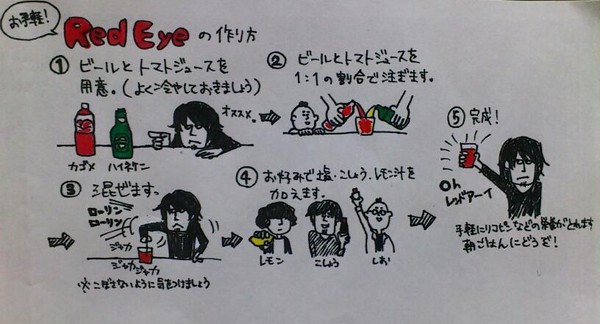 お手軽！
Red Eye の作り方
① ビールとトマトジュースを
用意。(よく冷やしておきましょう)
オススメ。
カゴメ
ハイネケン
② ビールとトマトジュースを
1:1の割合で注ぎます。
③ 混ぜますっ
ローリン
ローリン
ジャカ
ジャカジャカ
※こぼさないように気をつけましょう
④ お好みで塩・こしょう、レモン汁を
加えます。
レモン
こしょう
しお
⑤ 完成！
Oh
レッドアーイ
手軽にリコピンなどの栄養がとれます
朝ごはんにどうぞ！